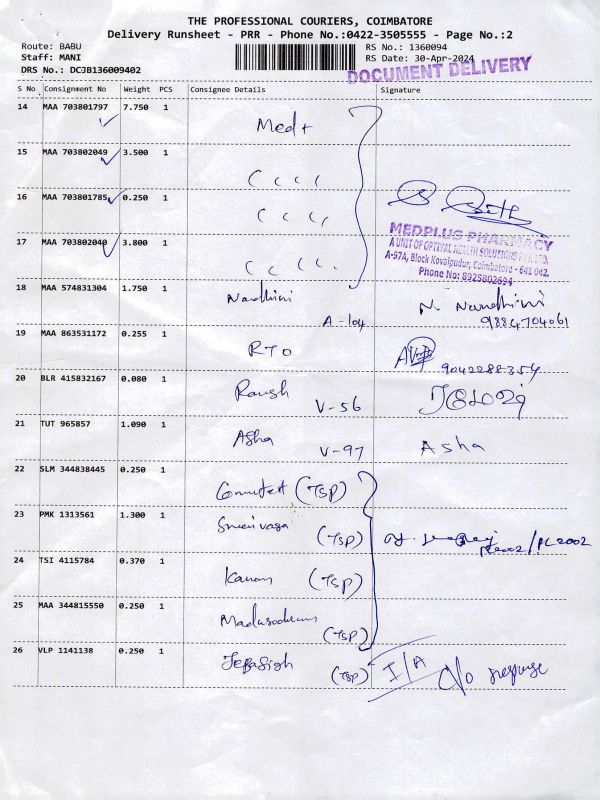 THE PROFESSIONAL COURIERS, COIMBATORE
Delivery Runsheet - PRR - Phone No.:0422-3505555 - Page No.:2
Route: BABU
RS No.: 1360094
Staff: MANI
RS Date: 30-Apr-2024
DRS No.: DCJB136009402
DOCUMENT DELIVERY
S No Consignment No Weight PCS Consignee Details Signature
14 MAA 703801797 7.750 1
Med+
15 MAA 703802049 3.500 1
16 MAA 703801785 0.250 1
MEDPLUS PHARMACY
A UNIT OF OPTIVAL HEALTH SOLUTIONS PVT. LTD.
A-97A, Block Kovaipudur, Coimbatore - 641 042.
Phone No: 8925802694
17 MAA 703802040 3.800 1
18 MAA 574831304 1.750 1 Nandhini N. Nandhini
A-104 9884704061
19 MAA 863531172 0.255 1
RTO 9042288354
20 BLR 415832167 0.080 1
V-56
21 TUT 965857 1.090 1
Asha V-97 Asha
22 SLM 344838445 0.250 1
(TSP)
23 PMK 1313561 1.300 1
(TSP) /PC2002
24 TSI 4115784 0.370 1
(TSP)
25 MAA 344815550 0.250 1
(TSP)
26 VLP 1141138 0.250 1
(TSP) I/A No response